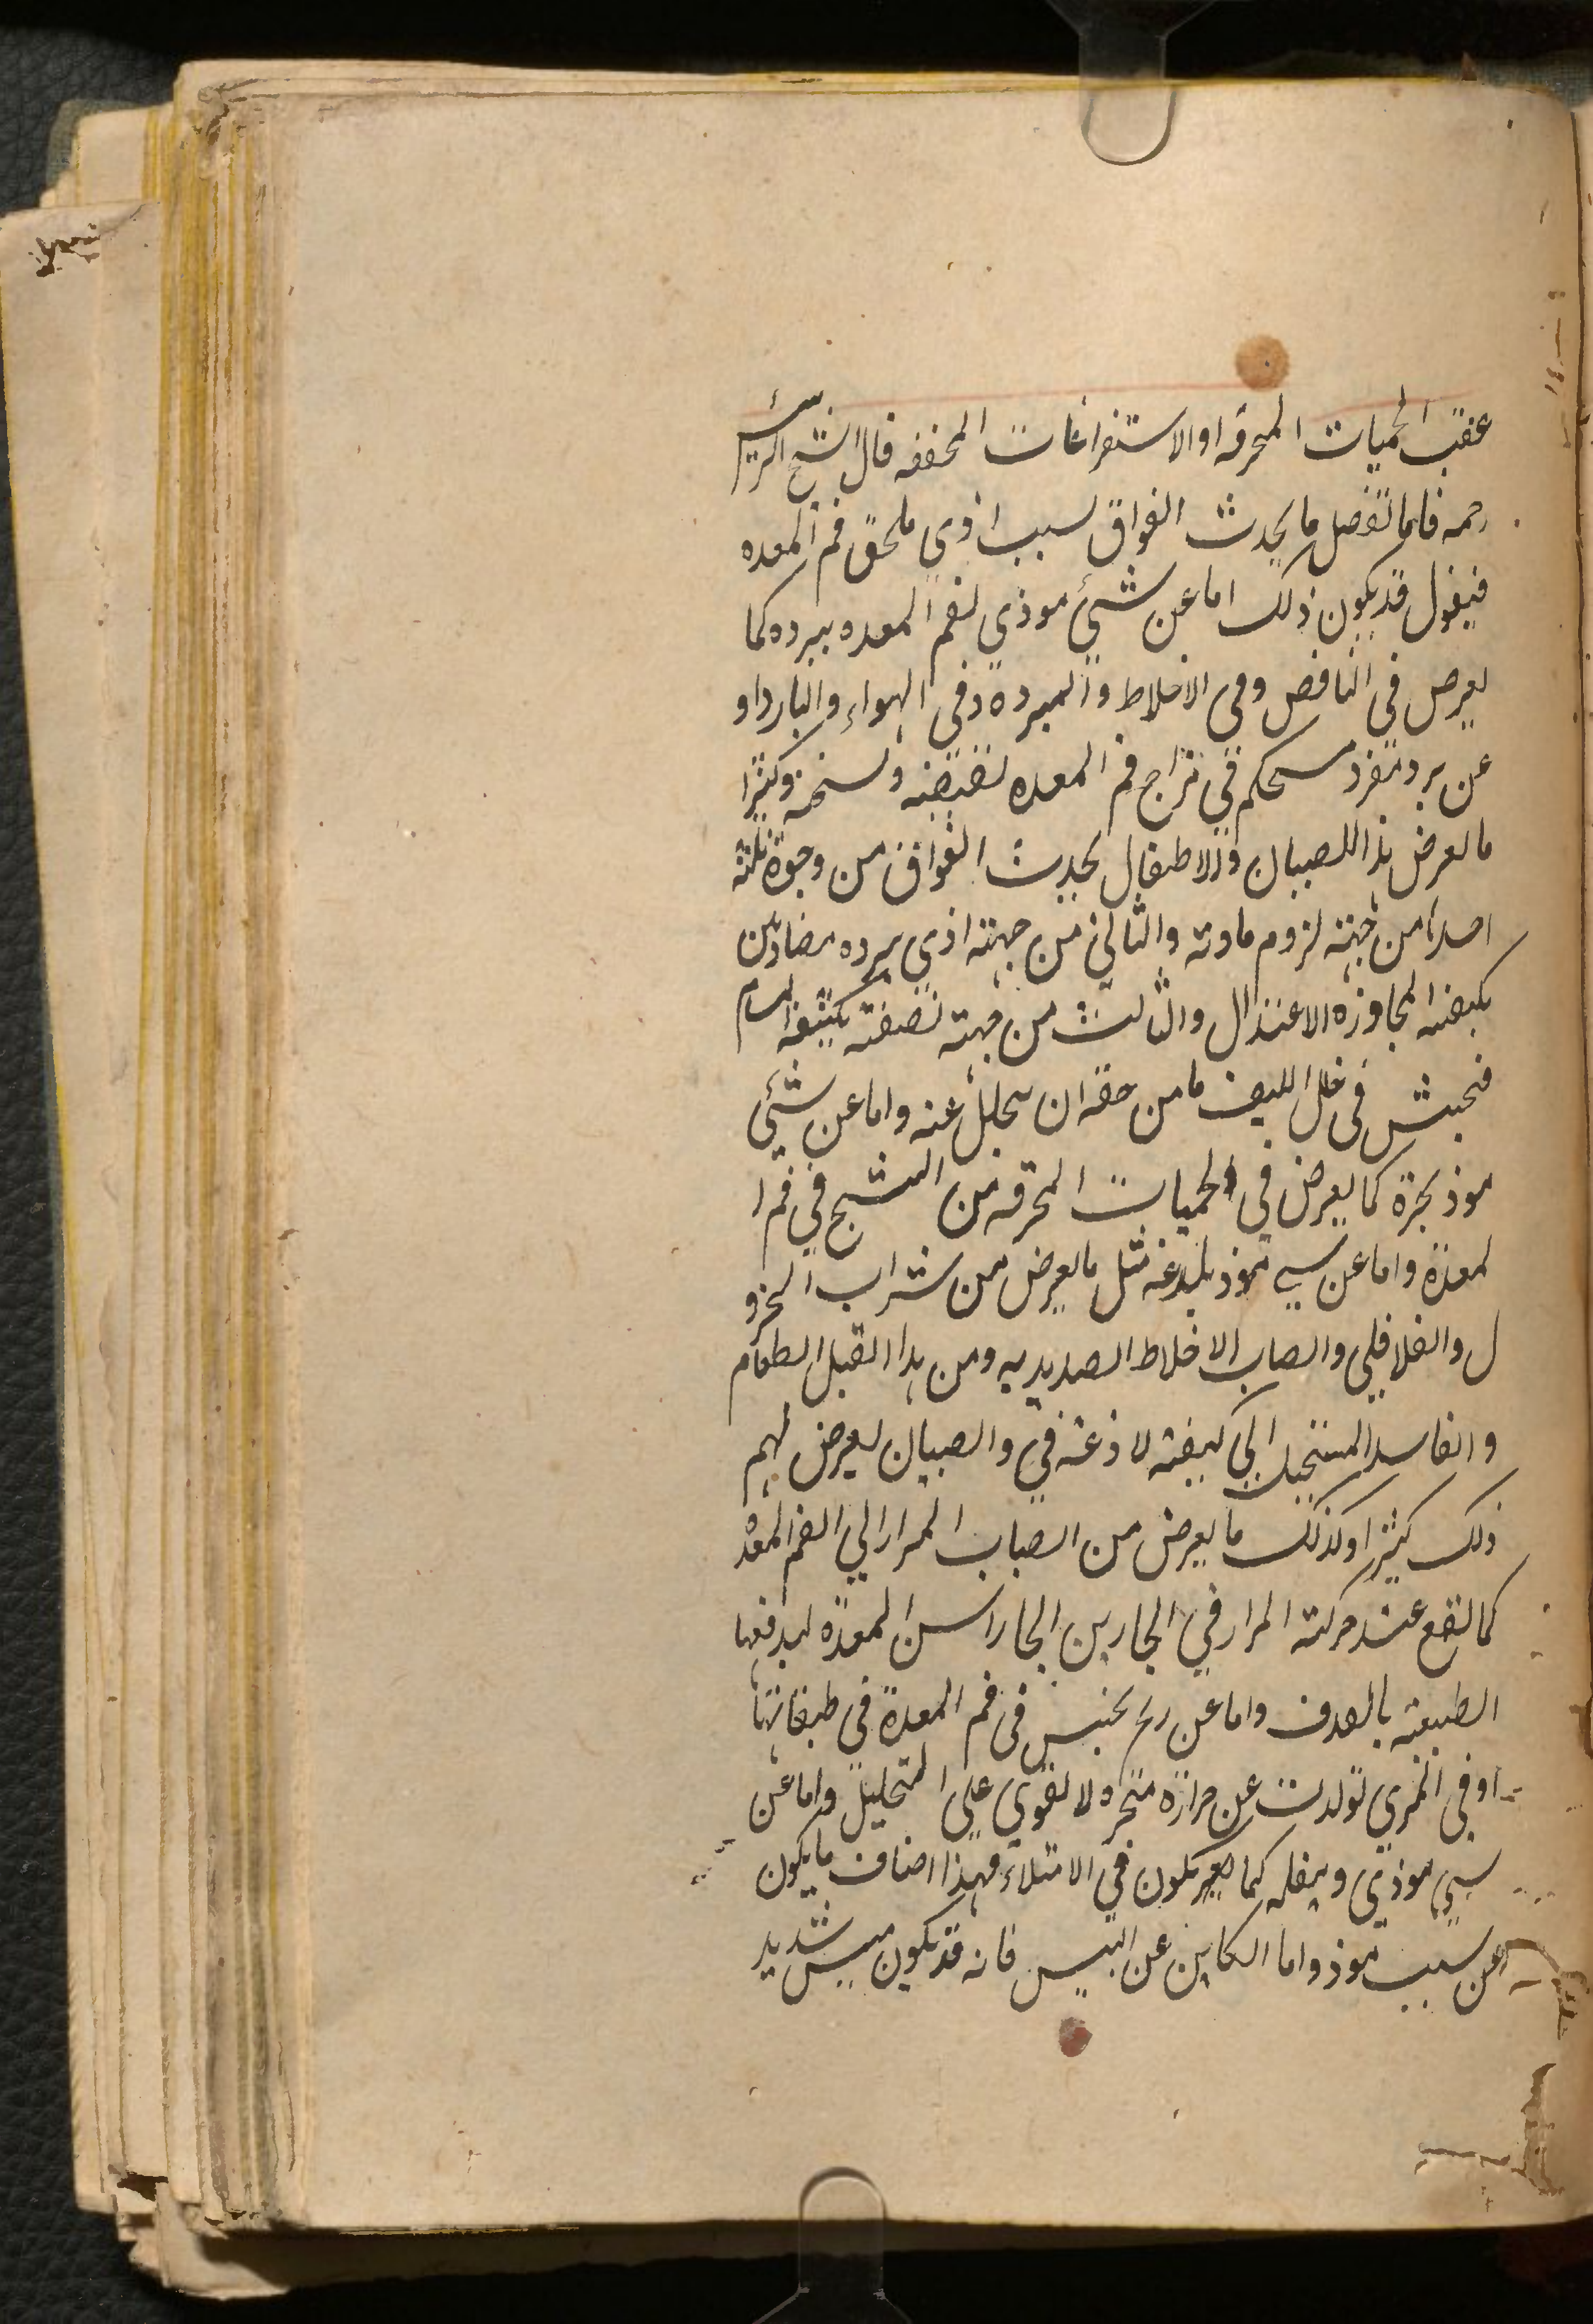 عقب الحميات المحرقه او الاستفراغات المجففه قال الشيخ الرئيس
رحمه فاما تفصل ما يحدث الفواق لسبب اذوي ملحق فم المعده
فيقول قد يكون ذلك اما عن شئ موذي لفم المعده ببرده كما
يعرض في النافض وفي الاخلاط والمبرده وفي الهواء والبارد او
عن برد مفرد مستحكم في مزاج فم المعده وكثيرا
ما يعرض هذا للصبيان والاطفال يحدث الفواق من وجوة ثلثة
احدها من جهته لزوم مادته والثاني من جهته اذي برده مضادين
بكيفيته المجاوزه الاعتدال والثالث من جهته
في خلل الليف ما من حقه ان يتحلل عنه واما عن شئي
موذ بحرة كما يعرض في الحميات المحرقه من التشنج في فم ا
لمعدة واما عن سي موذ بلدغه مثل ما يعرض من شراب الخرد
ل والفلافلي وانصاب الاخلاط الصديديه ومن هذا القبل الطعام
والفاسد المستحيل الي كيفيته لاذغة في والصبيان يعرض لهم
ذلك كثيرا وكذلك ما يعرض من انصباب المرار الي الفم المعدة
كما يقع عند حركته المرار في البحارين راس المعدة ليدفعها
الطبيعته بالقذف واما عن ريح يحتبس في فم المعدة في طبقاتها
او في المري تولدت عن حرارة مبخره لا تقوي علي التحليل واما عن
سي موذي وبثقله كما يكون في الامتلاء فهذا اصناف ما يكون
عن سبب موذ واما الكاين عن اليبس فانه قد يكون يبس شديد